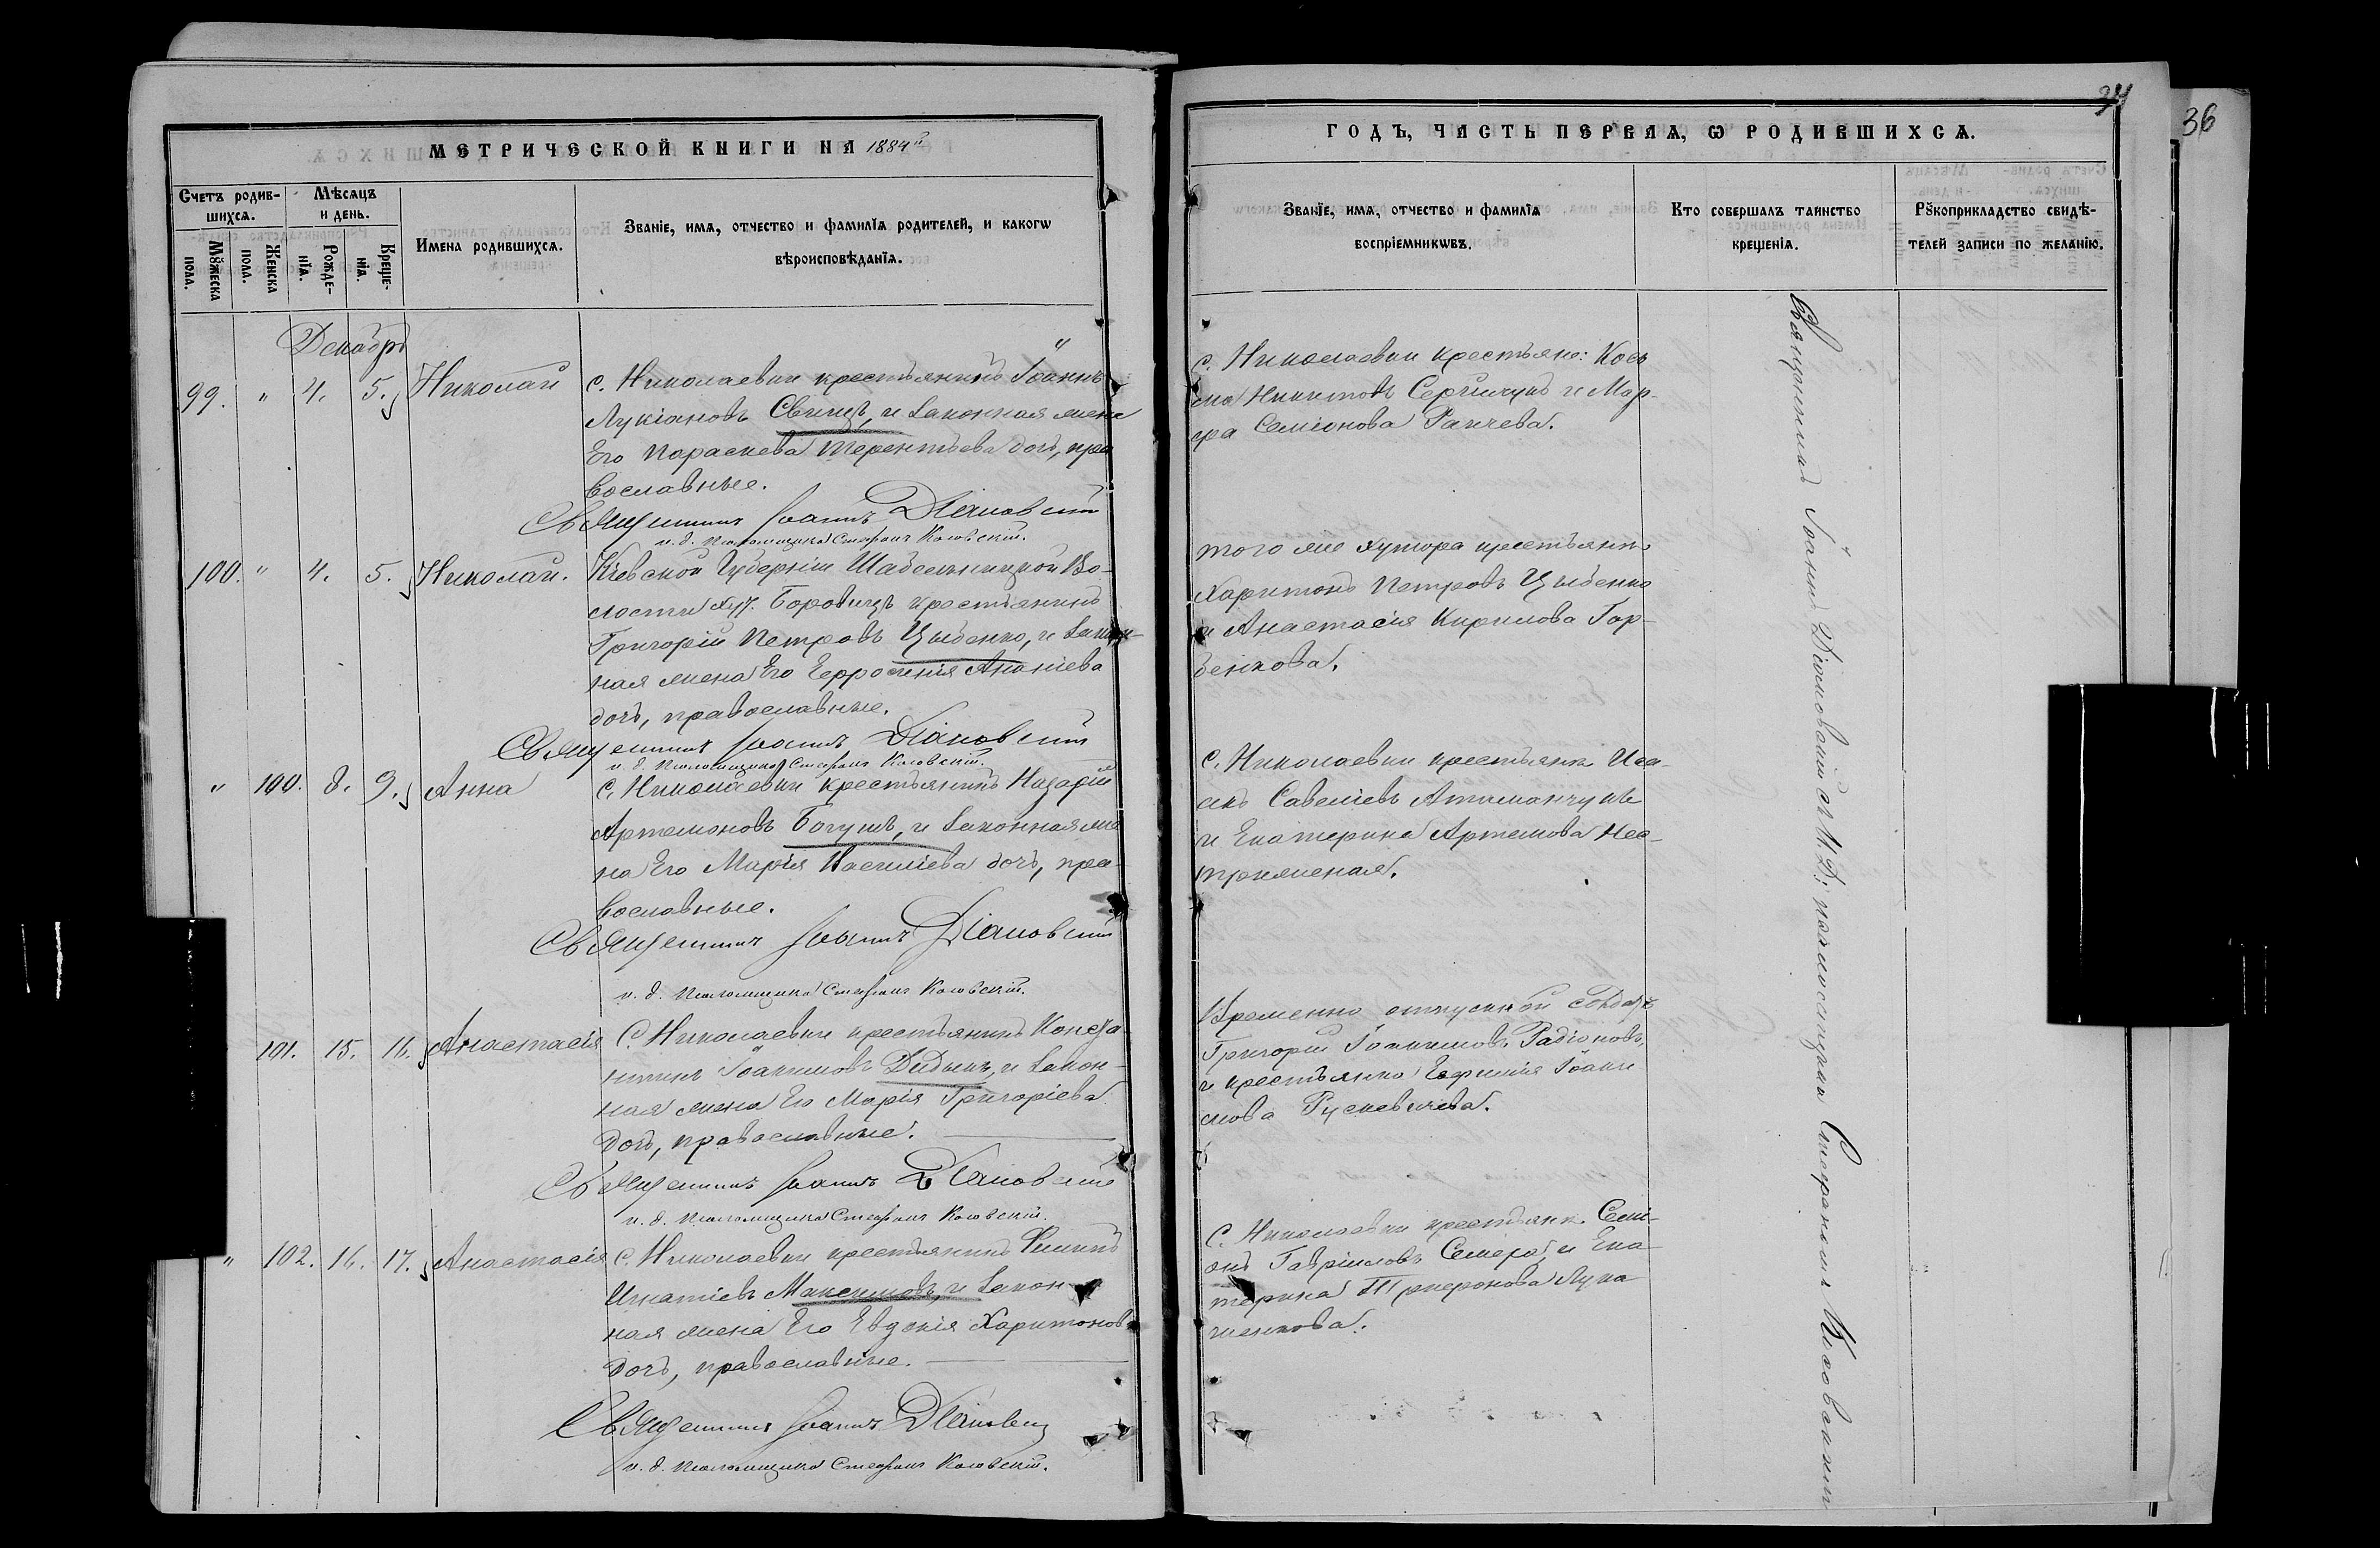 МЕТРИЧЕСКОЙ КНИГИ НА 1884й
Счетъ родив-
шихсѧ.
Мѣсѧцъ
и день.
Мꙋжеска
пола.
Женска
пола.
Рожде-
нїѧ.
Креще-
нїѧ.
Имена родившихсѧ.
Званїе, имѧ, отчество и фамилїѧ родителей, и какогѡ
вѣроисповѣданїѧ.
Декабрь
99. " 4. 5. Николай
с. Николаевки крестьянинъ Іоаннъ
Лукіановъ Свинцъ, и законная жена
Его Параскева Терентьева дочь, пра
вославные.
Священникъ Іоаннъ
и. д. Псаломщика Стефанъ
100. " 4. 5. Николай.
Кіевской Губерніи Шабельницкой Во-
лости хут. Боровицъ крестьянинъ
Григорій Петровъ Цыбенко, и закон-
ная жена Его Евфросинія Ананіева
дочь, православные.
Священникъ Іоаннъ
и. д. Псаломщика Стефанъ
" 100. 8. 9. Анна
с. Николаевки крестьянинъ Назарій
Артемоновъ Богушъ, и законная же
на Его Марія Василіева дочь, пра-
вославные.
Священникъ Іоаннъ
и. д. Псаломщика Стефанъ
101. 15. 16. Анастасія
С. Николаевки крестьянинъ Конста-
нтинъ Іоакимовъ Дидыкъ, и закон-
ная жена Его Марія Григоріева
дочь, православные.
Священникъ Іоаннъ
и. д. Псаломщика Стефанъ
" 102. 16. 17. Анастасія
с. Николаевки крестьянинъ Филипъ
Игнатіевъ Максимовъ, и закон
ная жена Его Евдокія Харитонова
дочь, православные.
Священникъ Іоаннъ
и. д. Псаломщика Стефанъ
34
36
ГОДЪ, ЧАСТЬ ПЕРВАѦ, Ѡ РОДИВШИХСѦ.
Званїе, имѧ, отчество и фамилїѧ
воспрїемникѡвъ.
Кто совершалъ таинство
крещенїѧ.
Рꙋкоприкладство свидѣ-
телей записи по желанїю.
с. Николаевки крестьяне: Кось
ма Никитовъ Сергійчукъ и Мар-
фа Семіонова Ранчева.
того же хутора крестьяне
Харитонъ Петровъ Цыбенко
и Анастасія Кирилова Гор-
бенкова.
с. Николаевки крестьяне Иса-
акъ Савеліевъ Атаманчукъ
и Екатерина Артемова Нес-
тряженая.
Временно отпускной солдатъ
Григорій Іоакимовъ Радіоновъ,
и крестьянка Евфимія Іоаки
мова Рускевичева.
С. Николаевки крестьяне Семі-
онъ Гавріиловъ Семера, и Ека-
терина Трифонова Лука
шенкова.
Священникъ Іоаннъ И. Д. псаломщикомъ Стефаномъ